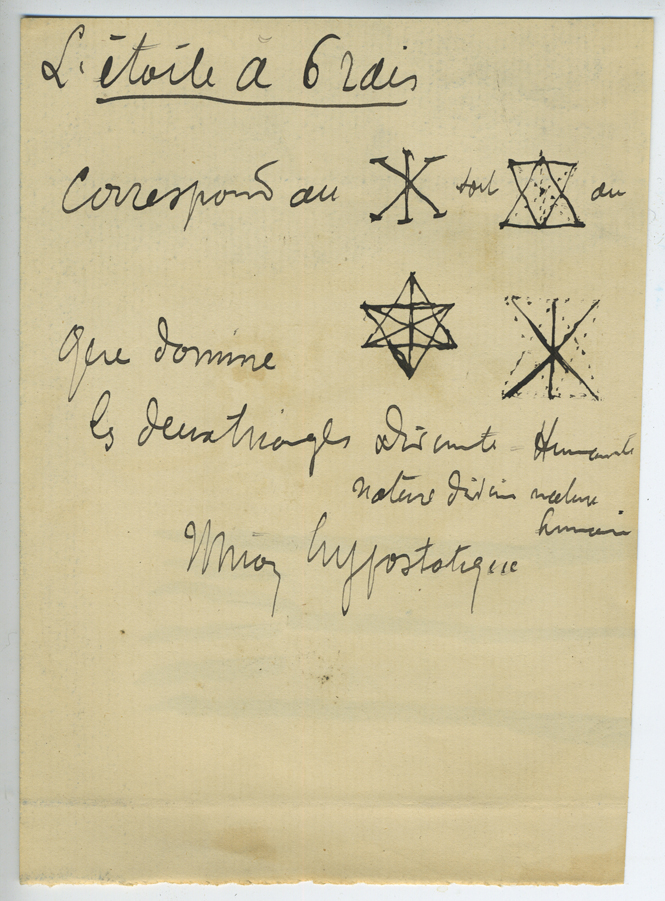 L'étoile à 6 rais
Correspond au soit au
que domine
les deux triangles Divinité = Humanité
nature divine nature
humaine
Union hypostatique